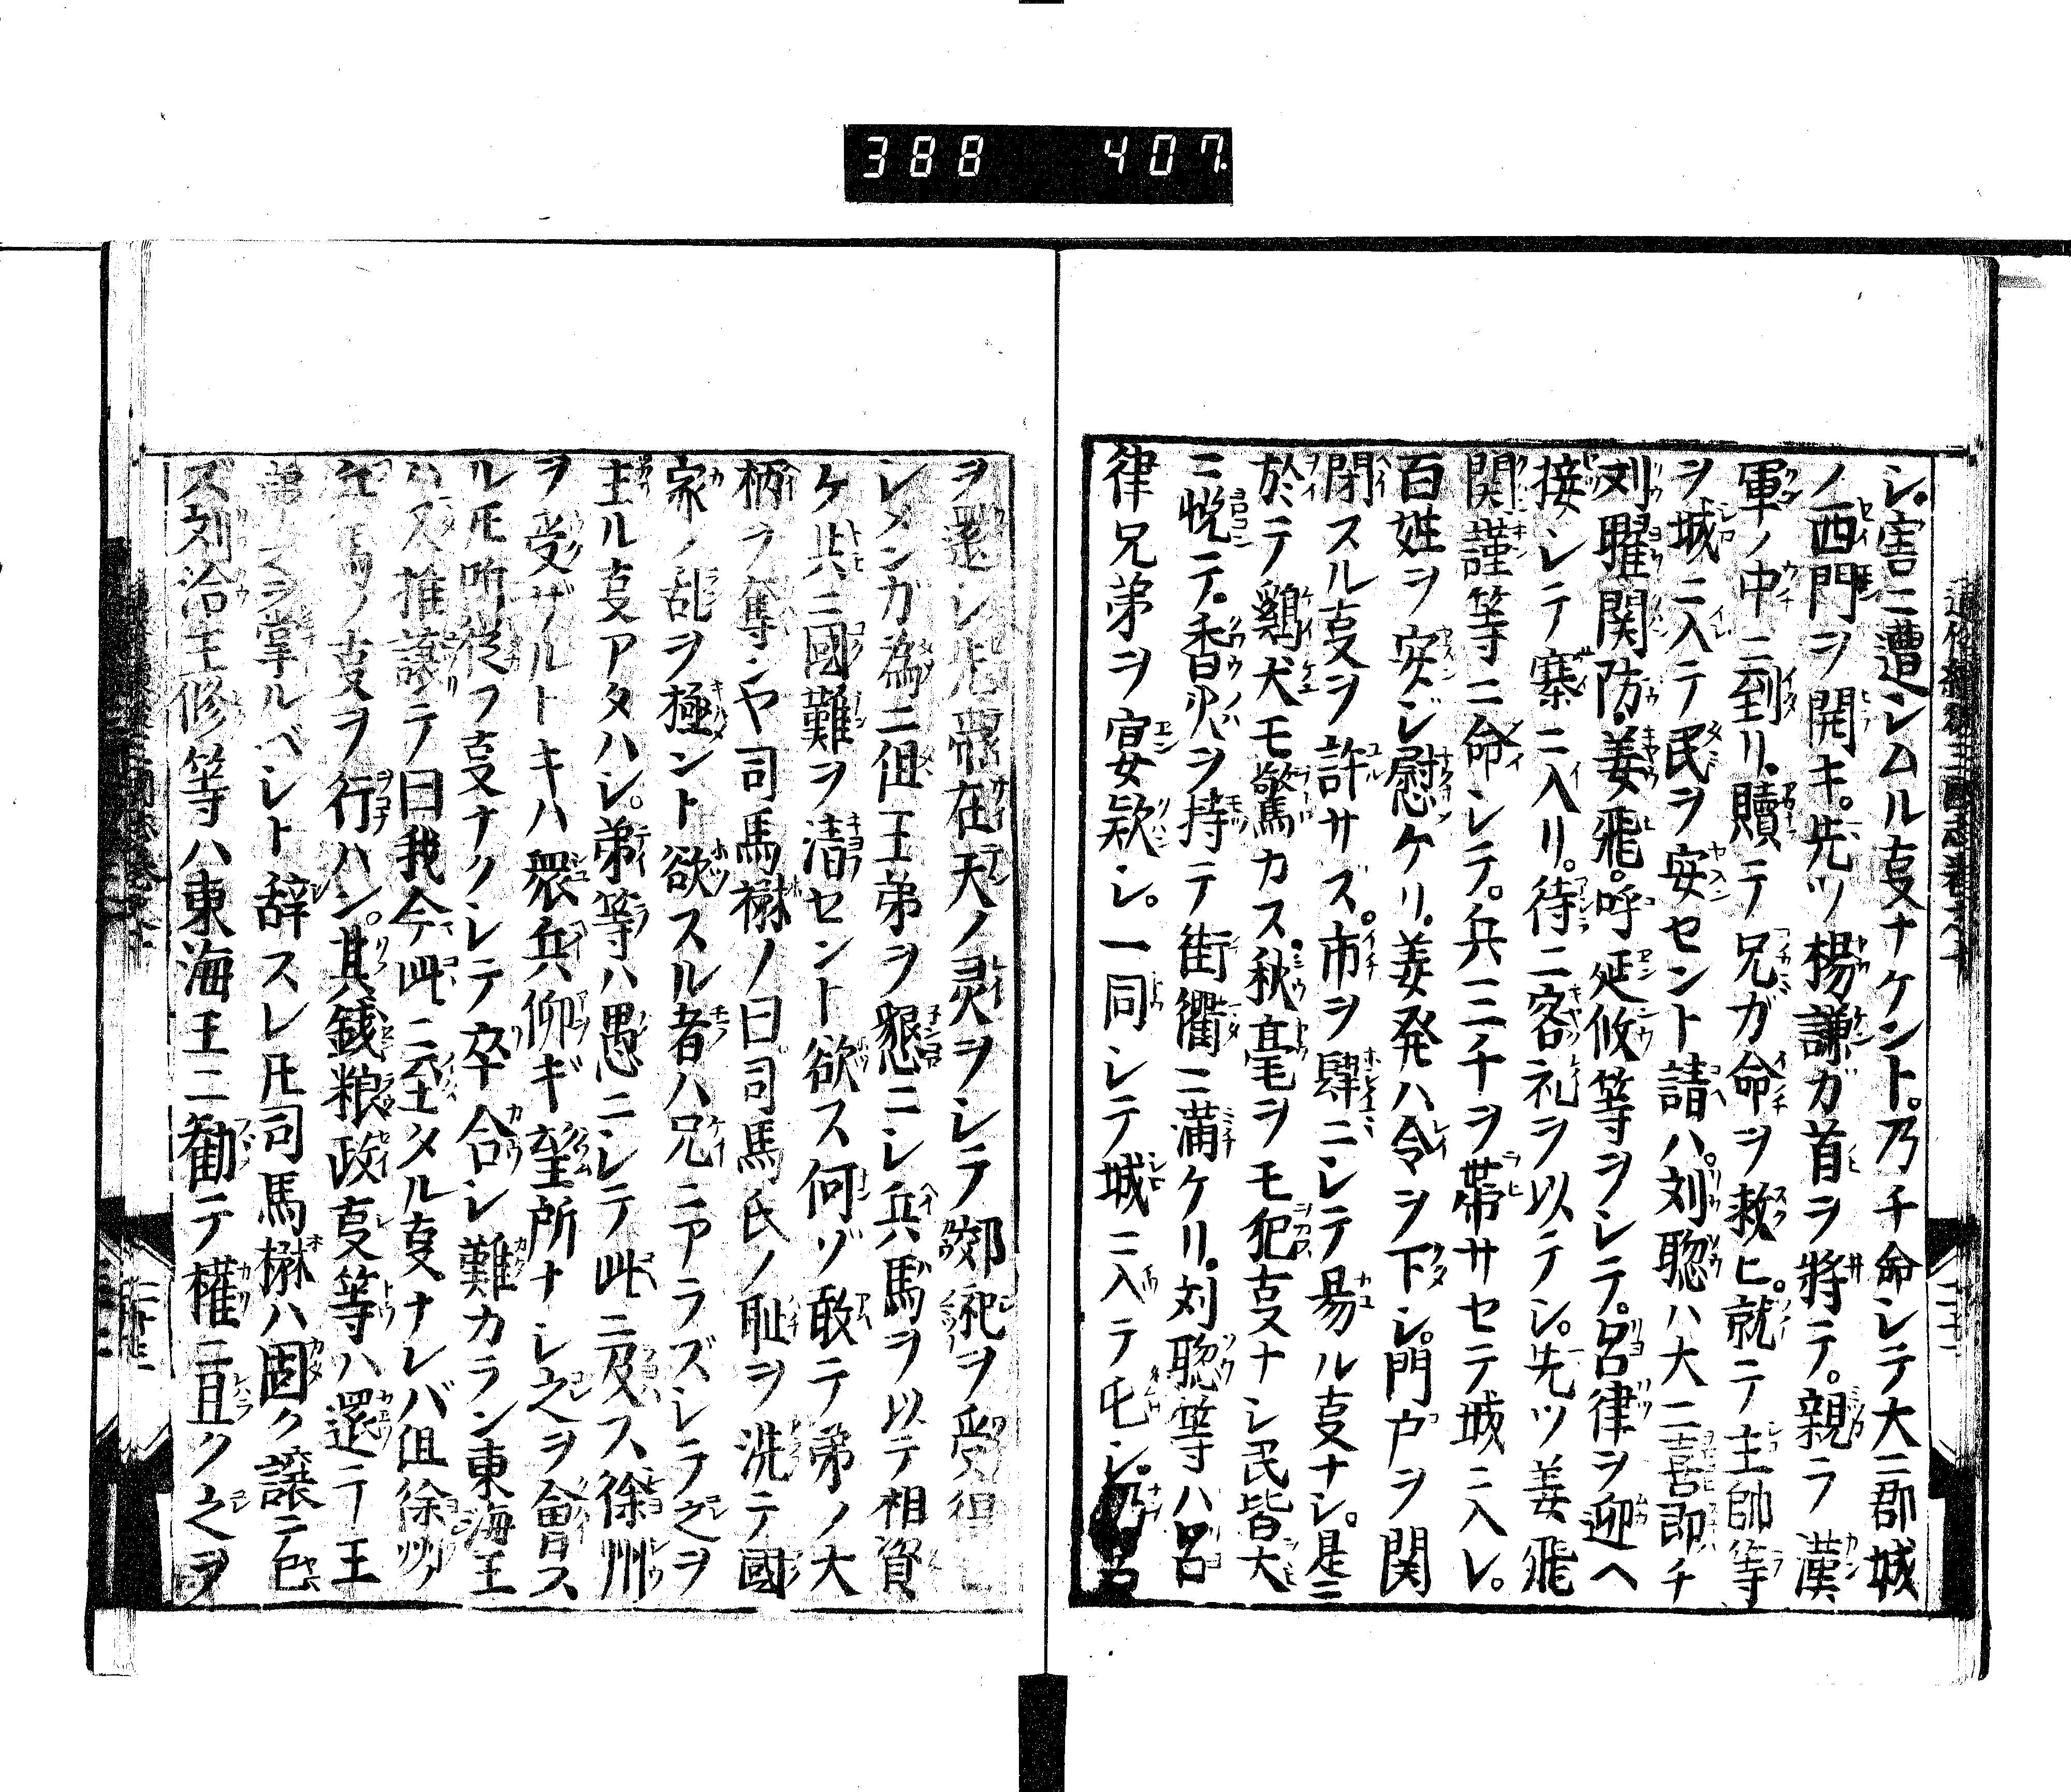 388 407
シ害ニ遭シムル㕝ナケント乃チ命シテ大ニ郡城
ノ西門ヲ開キ先ツ楊謙ガ首ヲ將テ親ラ漢
軍ノ中ニ到リ贖テ兄ガ命ヲ救ヒ就ニテ主帥等
ヲ城ニ入テ民ヲ安セント請ハ刘聡ハ大ニ喜即チ
刘曜関防姜飛呼延攸等ヲシテ呂律ヲ迎ヘ
接シテ寨ニ入リ待ニ客礼ヲ以テシ先ツ姜飛
関謹等ニ命シテ兵三千ヲ帯サセテ城ニ入レ
百姓ヲ安ジ慰ケリ姜発ハ令ヲ下シ門戸ヲ関
閉スル㕝ヲ許サズ市ヲ肆ニシテ易ル㕝ナシ是ニ
於テ鷄犬モ驚カス秋毫ヲモ犯㕝ナシ民皆大
ニ悦テ香火ヲ持テ街衢ニ満ケリ刘聡等ハ呂
律兄弟ヲ宴欵シ一同シテ城ニ入テ屯シ乃呂
ヲ還シ先帝在天ノ灵ヲシテ郊祀ヲ受得
シメンガ為ニ伹王弟ヲ懇ニシ兵馬ヲ以テ相資
ケ共ニ國難ヲ清セント欲ス何ゾ敢テ弟ノ大
柄ヲ奪ンヤ司馬楙ノ曰司馬氏ノ耻ヲ洗テ國
家ノ乱ヲ極ント欲スル者ハ兄ニアラズシテ之ヲ
主ル㕝アタハシ弟等ハ愚ニシテ此ニ及ス徐州
ヲ受ザルトキハ衆兵仰ギ望所ナシ之ヲ會ス
ルモ所従フ㕝ナクシテ卒合シ難カラン東海王
ハ又推譲テ曰我今此ニ至タル㕝ナレバ伹徐州ノ
兵馬ノ㕝ヲ行ハン其銭粮政㕝等ハ還テ王
弟之ヲ掌ルベシト辞スレ𪜈司馬楙ハ固ク譲テ已
ズ刘洽王修等ハ東海王ニ勧テ權ニ且ク之ヲ